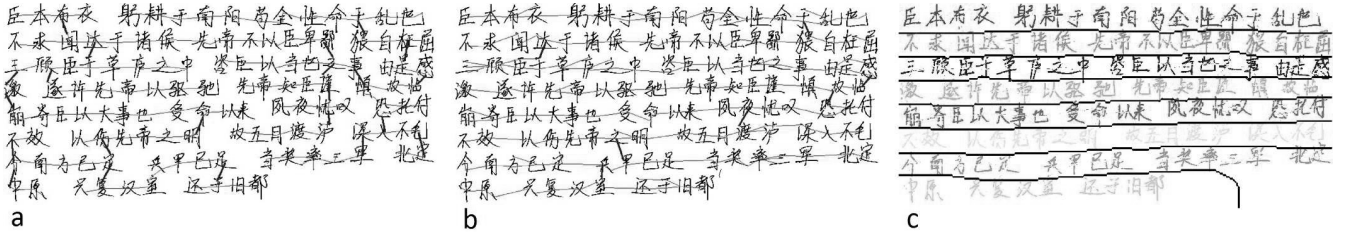 臣本布衣 躬耕于南阳 苟全性命于乱世
不求闻达于诸侯 先帝不以臣卑鄙 猥自枉屈
三顾臣于草庐之中 咨臣以当世之事 由是感
激 遂许先帝以驱驰 先帝知臣谨 慎 故临
崩寄臣以大事也 受命以来 夙夜忧叹 恐托付
不效 以伤先帝之明 故五月渡泸 深入不毛
今南方已定 兵甲已足 当奖率三军 北定
中原 兴复汉室 还于旧都
a
臣本布衣 躬耕于南阳 苟全性命于乱世
不求闻达于诸侯 先帝不以臣卑鄙 猥自枉屈
三顾臣于草庐之中 咨臣以当世之事 由是感
激 遂许先帝以驱驰 先帝知臣谨 慎 故临
崩寄臣以大事也 受命以来 夙夜忧叹 恐托付
不效 以伤先帝之明 故五月渡泸 深入不毛
今南方已定 兵甲已足 当奖率三军 北定
中原 兴复汉室 还于旧都
b
臣本布衣 躬耕于南阳 苟全性命于乱世
不求闻达于诸侯 先帝不以臣卑鄙 猥自枉屈
三顾臣于草庐之中 咨臣以当世之事 由是感
激 遂许先帝以驱驰 先帝知臣谨 慎 故临
崩寄臣以大事也 受命以来 夙夜忧叹 恐托付
不效 以伤先帝之明 故五月渡泸 深入不毛
今南方已定 兵甲已足 当奖率三军 北定
中原 兴复汉室 还于旧都
c